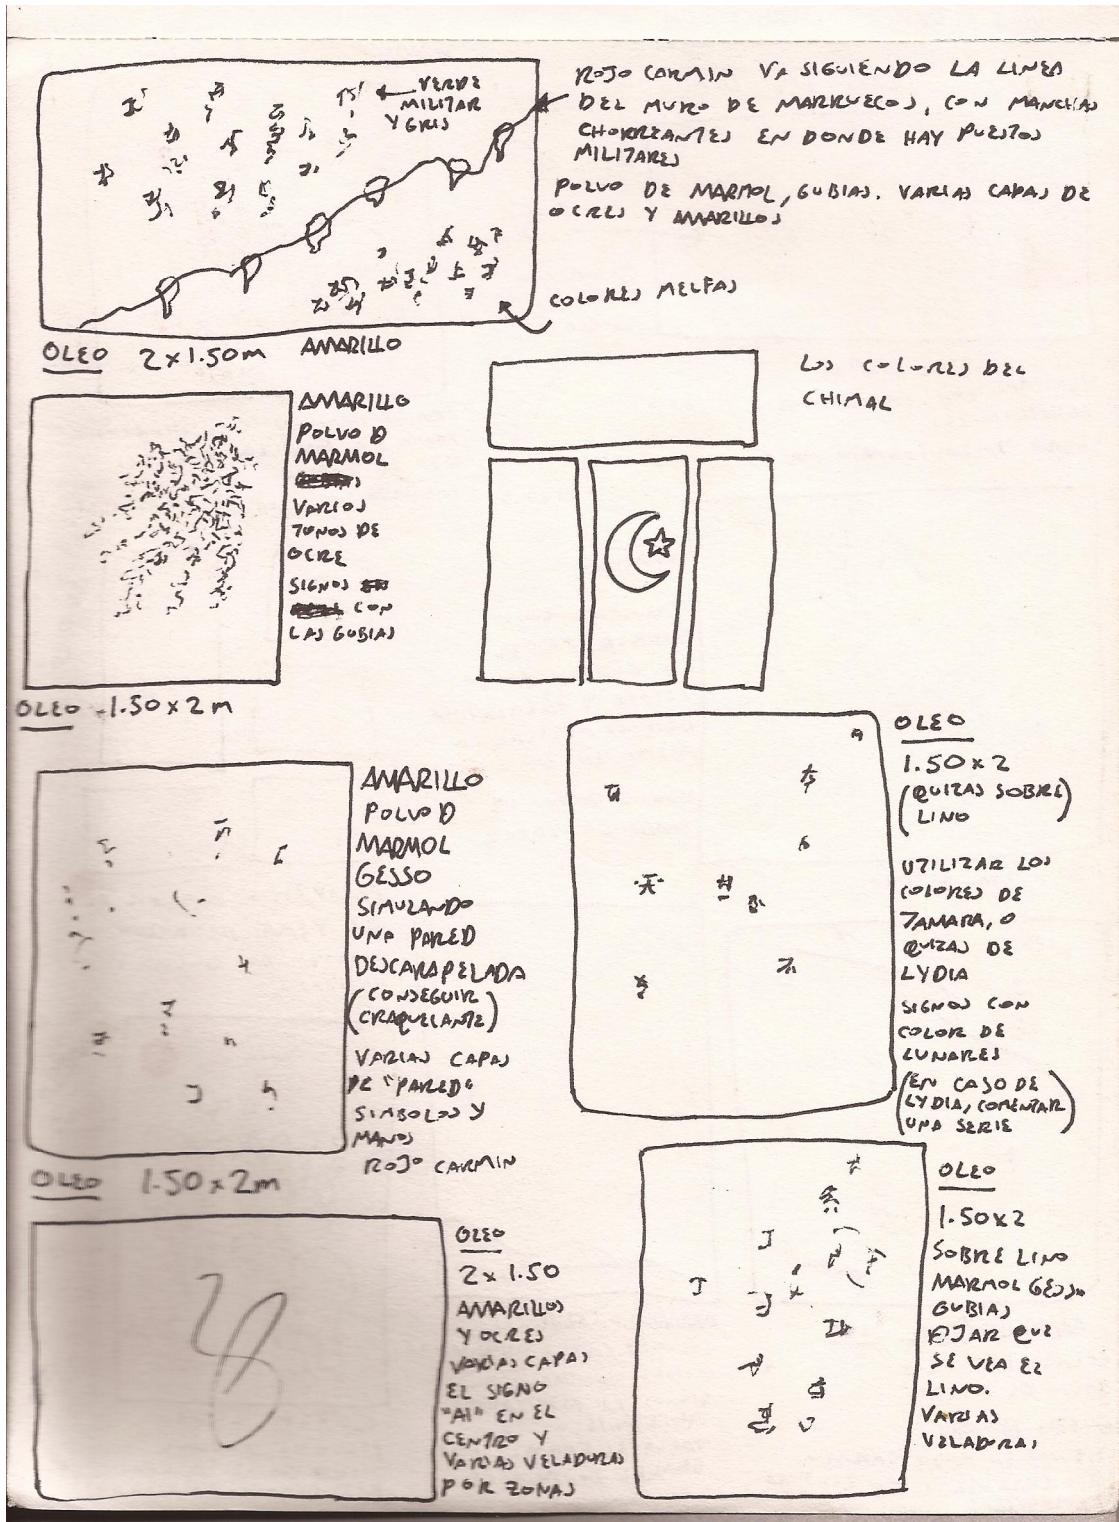 VERDE
MILITAR
Y GRIS
ROJO CARMIN VA SIGUIENDO LA LINEA
DEL MURO DE MARRUECOS, CON MANCHAS
CHORREANTES EN DONDE HAY PUESTOS
MILITARES
POLVO DE MARMOL, GUBIAS. VARIAS CAPAS DE
OCRES Y AMARILLOS
COLORES MELFAS
OLEO 2 x 1.50 m AMARILLO
AMARILLO
POLVO D
MARMOL
VARIOS
TONOS DE
OCRE
SIGNOS
CON
LAS GUBIAS
OLEO 1.50 x 2 m
LOS COLORES DEL
CHIMAL
AMARILLO
POLVO D
MARMOL
GESSO
SIMULANDO
UNA PARED
DESCARAPELADA
(CONSEGUIR
CRAQUELANTE)
VARIAS CAPAS
DE "PARED"
SIMBOLOS Y
MANOS
ROJO CARMIN
OLEO 1.50 x 2 m
OLEO
1.50 x 2
(QUIZAS SOBRE
LINO)
UTILIZAR LOS
COLORES DE
TAMARA, O
QUIZAS DE
LYDIA
SIGNOS CON
COLOR DE
LUNARES
(EN CASO DE
LYDIA, COMENZAR
UNA SERIE)
OLEO
2 x 1.50
AMARILLOS
Y OCRES
VARIAS CAPAS
EL SIGNO
"AI" EN EL
CENTRO Y
VARIAS VELADURAS
POR ZONAS
OLEO
1.50 x 2
SOBRE LINO
MARMOL GESSO
GUBIAS
DJAR QUE
SE VEA EL
LINO.
VARIAS
VELADURAS